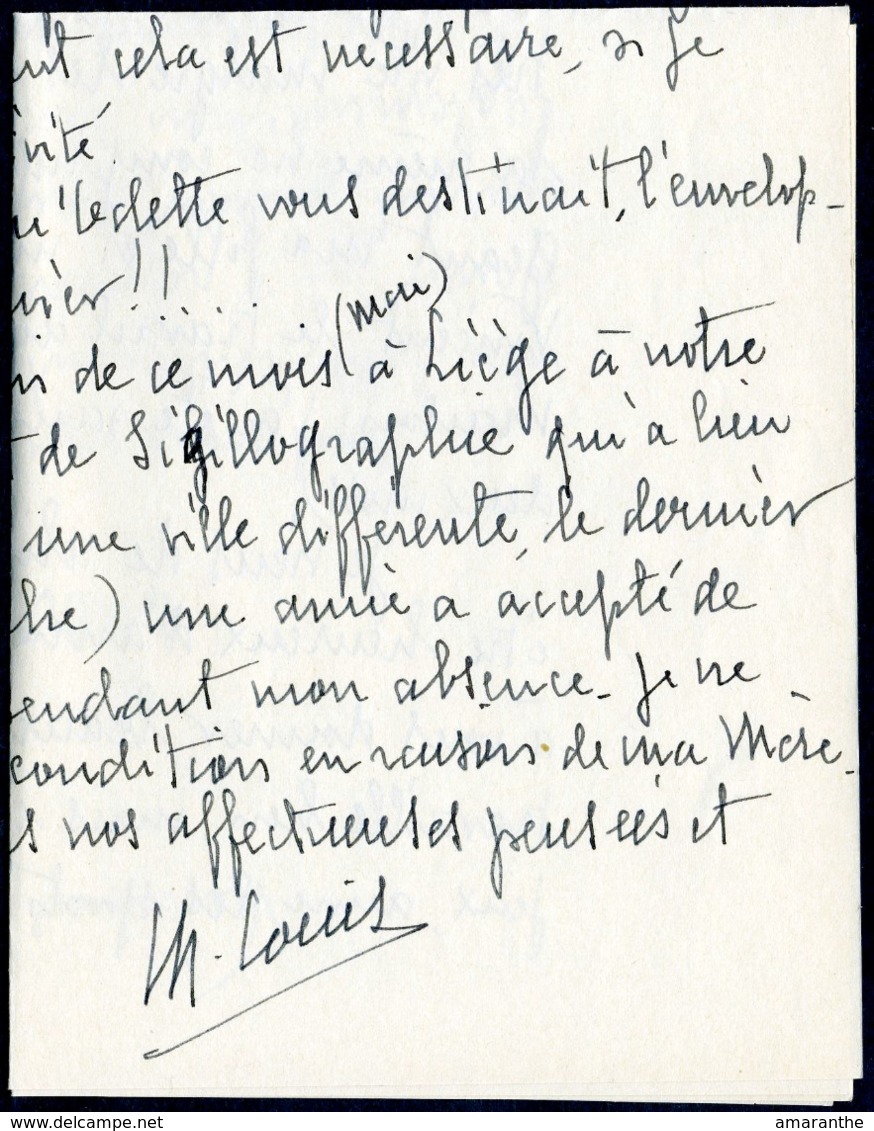 nt cela est nécessaire, si je
vité.
Colette vous destinait, l'envelop-
!! . . . .
(mai)
de ce mois à Liège à notre
de Sigillographie qui a lieu
une ville différente, le dernier
une amie a accepté de
endant mon absence. Je ne
condition en raison de ma Mère.
s nos affectueuses pensées et
Louis
www.delcampe.net
amaranthe